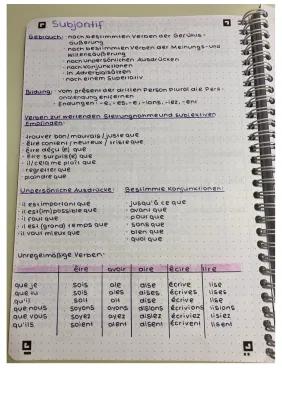 Subjontif
Gebrauch: • nach bestimmten Verben der Gefühls-
äußerung
• nach bestimmten Verben der Meinungs- und
Willensäußerung
• nach unpersönlichen Ausdrücken
• nach Konjunktionen
• in Adverbialsätzen
• nach einem Superlativ
Bildung: • vom présent der dritten Person Plural die Pers-
onalendung entfernen
• Endungen: -e, -es, -e, -ions, -iez, -ent
Verben zur wertenden Stellungnahme und subjektiven
Empfinden:
• trouver bon/mauvais/juste que
• être content/heureux/triste que
• être déçu(e) que
• être surpris(e) que
• il/cela me plaît que
• regretter que
• plaindre que
Unpersönliche Ausdrücke: Bestimmte Konjunktionen:
• il est important que • jusqu'à ce que
• il est (im)possible que • avant que
• il faut que • pour que
• il est (grand) temps que • sans que
• il vaut mieux que • bien que
• quoi que
Unregelmäßige Verben:
être avoir dire écrire lire
que je sois aie dise écrive lise
que tu sois aies dises écrives lises
qu'il soit ait dise écrive lise
que nous soyons ayons disions écrivions lisions
que vous soyez ayez disiez écriviez lisiez
qu'ils soient aient disent écrivent lisent